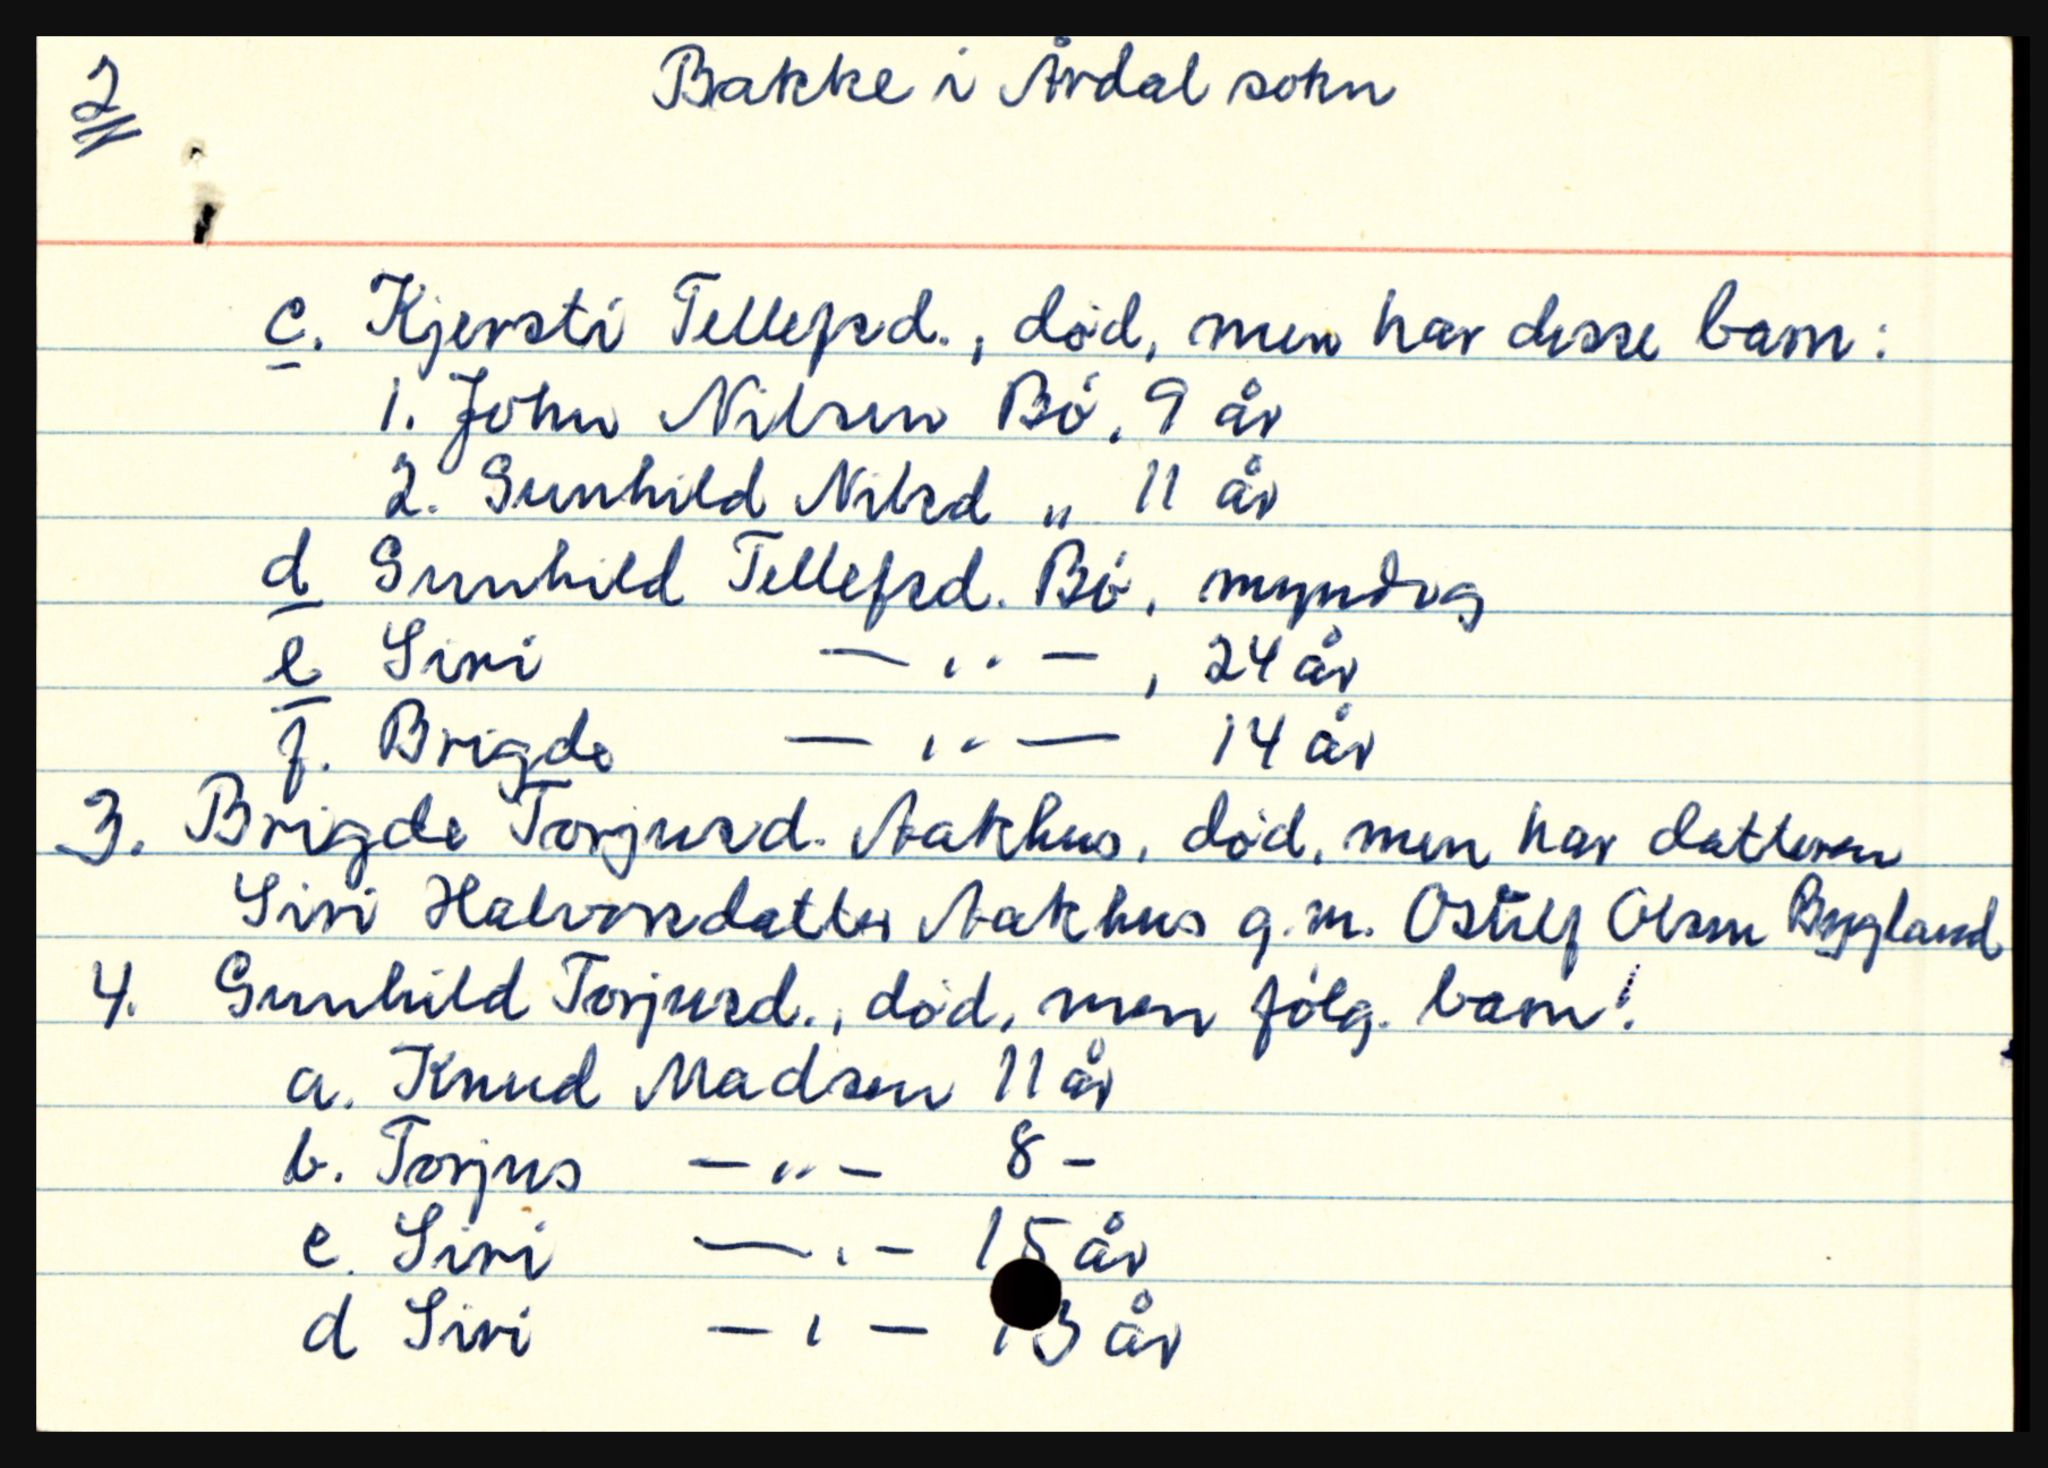 2
Bakke i Årdal sokn
c. Kjersti Tellefsd., død, men har disse barn:
1. John Nilsen Bø, 9 år
2. Gunhild Nilsd „ 11 år
d Gunhild Tellefsd. Bø, myndig
e Siri — „ — , 24 år
f. Brigde — „ — 14 år
3. Brigde Torjusd. Aakhus, død, men har datteren
Siri Halvorsdatter Aakhus g.m. Ostulf Olsen Bygland
4. Gunhild Torjusd., død, men følg. barn:
a. Knud Madsen 11 år
b. Torjus — „ — 8 -
c. Siri — „ — 15 år
d Siri — „ — 13 år